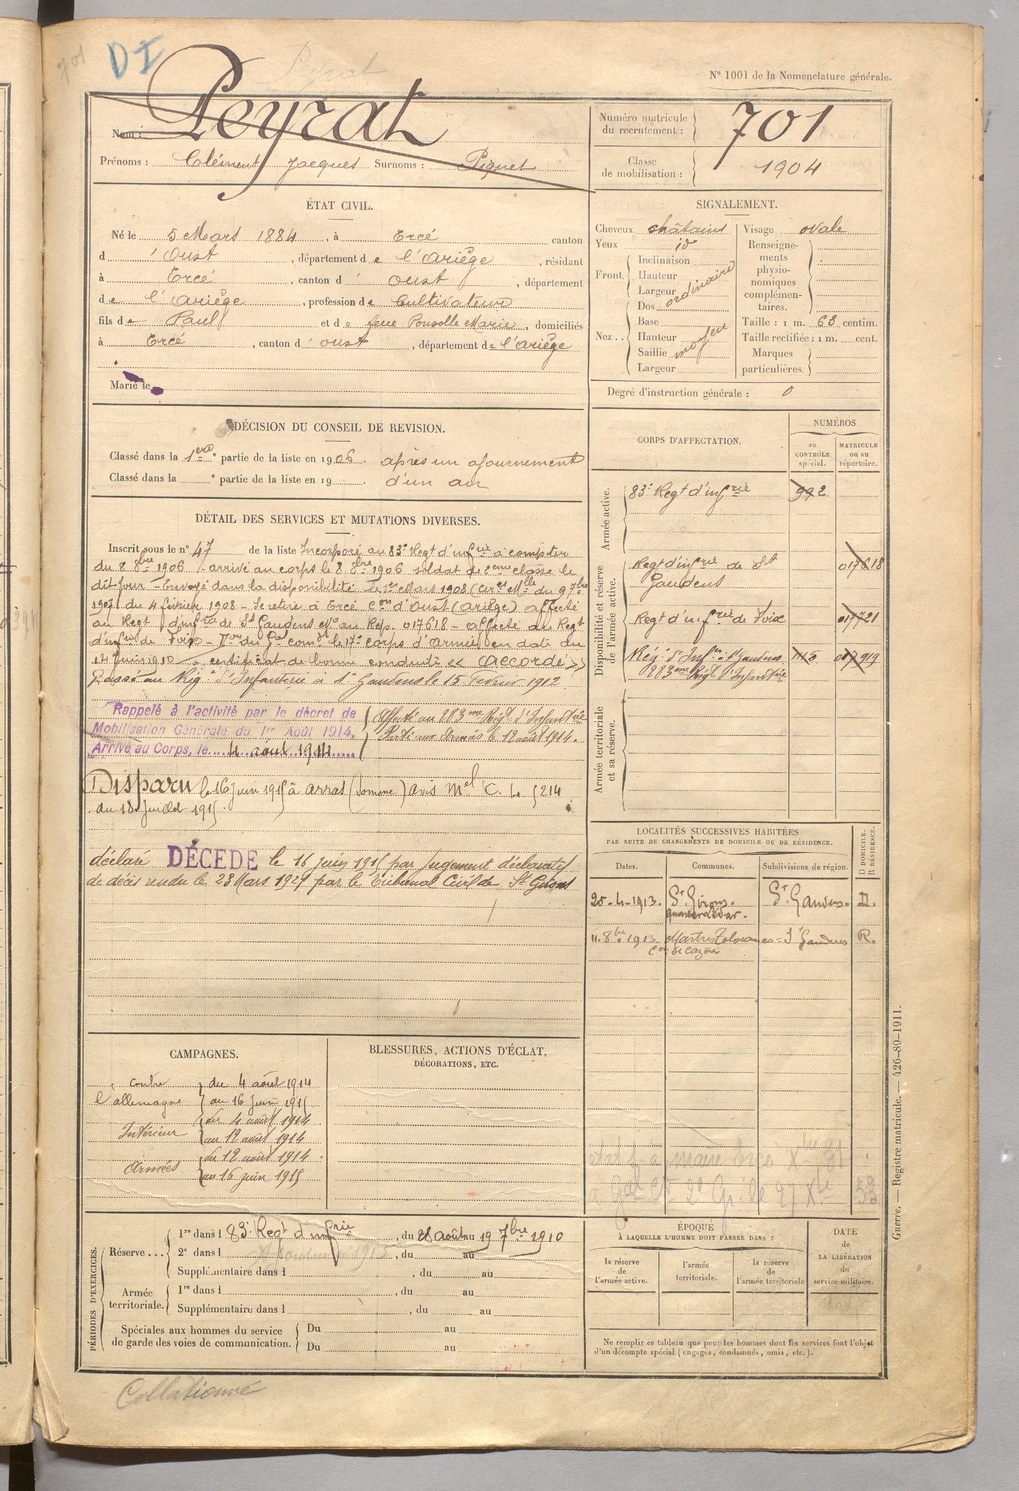 701
DI
Peyrat
N° 1001 de la Nomenclature générale.
Nom : Peyrat
Prénoms : Clément Jacques Surnoms : Piquet
Numéro matricule du recrutement : 701
Classe de mobilisation : 1904
ÉTAT CIVIL.
Né le 5 Mars 1884, à Ercé, canton
d'Oust, département de l'Ariège, résidant
à Ercé, canton d'oust, département
de l'Ariège, profession de Cultivateur
fils de Paul et de feue Pousolle Marie, domiciliés
à Ercé, canton d'oust, département de l'ariège
Marié le
SIGNALEMENT.
Cheveux châtains
Yeux id
Front. Inclinaison
Hauteur
Largeur
ordinaire
Nez.. Dos
Base
Hauteur
Saillie
Largeur
moyen
Visage ovale
Renseignements physionomiques complémentaires.
Taille : 1 m. 63 centim.
Taille rectifiée : 1 m. cent.
Marques particulières.
Degré d'instruction générale : 0
DÉCISION DU CONSEIL DE REVISION.
Classé dans la 1ère partie de la liste en 1906. après un ajournement
Classé dans la e partie de la liste en 19 d'un an
DÉTAIL DES SERVICES ET MUTATIONS DIVERSES.
Inscrit sous le n° 47 de la liste Incorporé au 83e Regt d'infrie à compter
du 8 8bre 1906 arrivé au corps le 8 8bre 1906 soldat de 2eme classe le
dit jour - Envoyé dans la disponibilité le 1er Mars 1908
du 4 février 1908 - Se retire à Ercé Con d'Oust (Ariège) affecté
au Regt d'infrie de St Gaudens No au Rep. 017618 - affecté au Regt
d'infrie de Foix - du Gal comdt le 17e corps d'Armée en date du
14 Juin 1910 - certificat de bonne conduite « accordé »
Passé au Régt d'Infanterie à St Gaudens le 15 Février 1912
Rappelé à l'activité par le décret de
Mobilisation Générale du 1er Août 1914,
Arrivé au Corps, le 4 août 1914
Affecté au 283me Régt d'Infanterie
Parti aux Armées le 12 août 1914.
Disparu le 16 juin 1915 à Arras (Somme) avis Mel C. L 5214
du 18 Juillet 1915.
déclaré DÉCÉDÉ le 16 juin 1915 par jugement déclaratif
de décès rendu le 23 Mars 1921 par le Tribunal Civil de St Girons
CORPS D'AFFECTATION.
NUMÉROS
au CONTRÔLE spécial.
MATRICULE ou au répertoire.
Armée active.
83e Regt d'infrie 992
Disponibilité et réserve de l'armée active.
Regt d'infrie de St Gaudens 017618
Regt d'infrie de Foix 017721
Régt d'Infrie St Gaudens
283me Régt d'Infanterie
Armée territoriale et sa réserve.
LOCALITÉS SUCCESSIVES HABITÉES
PAR SUITE DE CHANGEMENTS DE DOMICILE OU DE RÉSIDENCE.
Dates. Communes. Subdivisions de région. D DOMICILE. R RÉSIDENCE.
20-4-1913. St Girons. St Gaudens. D.
11. 8bre 1913 Martres Tolosane St Gaudens R.
Con de Cazères
CAMPAGNES.
contre l'allemagne du 4 août 1914
au 16 juin 1915
Intérieur du 4 août 1914
au 12 août 1914
Armées du 12 août 1914.
au 16 juin 1915
BLESSURES, ACTIONS D'ÉCLAT,
DÉCORATIONS, ETC.
PÉRIODES D'EXERCICES.
Réserve... 1re dans l 83e Regt d'infrie, du 28 août au 19 7bre 1910
2e dans l , du au
Supplémentaire dans l , du au
Armée territoriale. 1re dans l , du au
Supplémentaire dans l , du au
Spéciales aux hommes du service de garde des voies de communication. Du au
Du au
ÉPOQUE
À LAQUELLE L'HOMME DOIT PASSER DANS :
la réserve de l'armée active.
l'armée territoriale.
la réserve de l'armée territoriale
DATE DE LA LIBÉRATION du service militaire.
Ne remplir ce tableau que pour les hommes dont les services font l'objet
d'un décompte spécial (engagés, condamnés, omis, etc.).
Guerre. — Registre matricule. — 426-89-1911.
Collationné